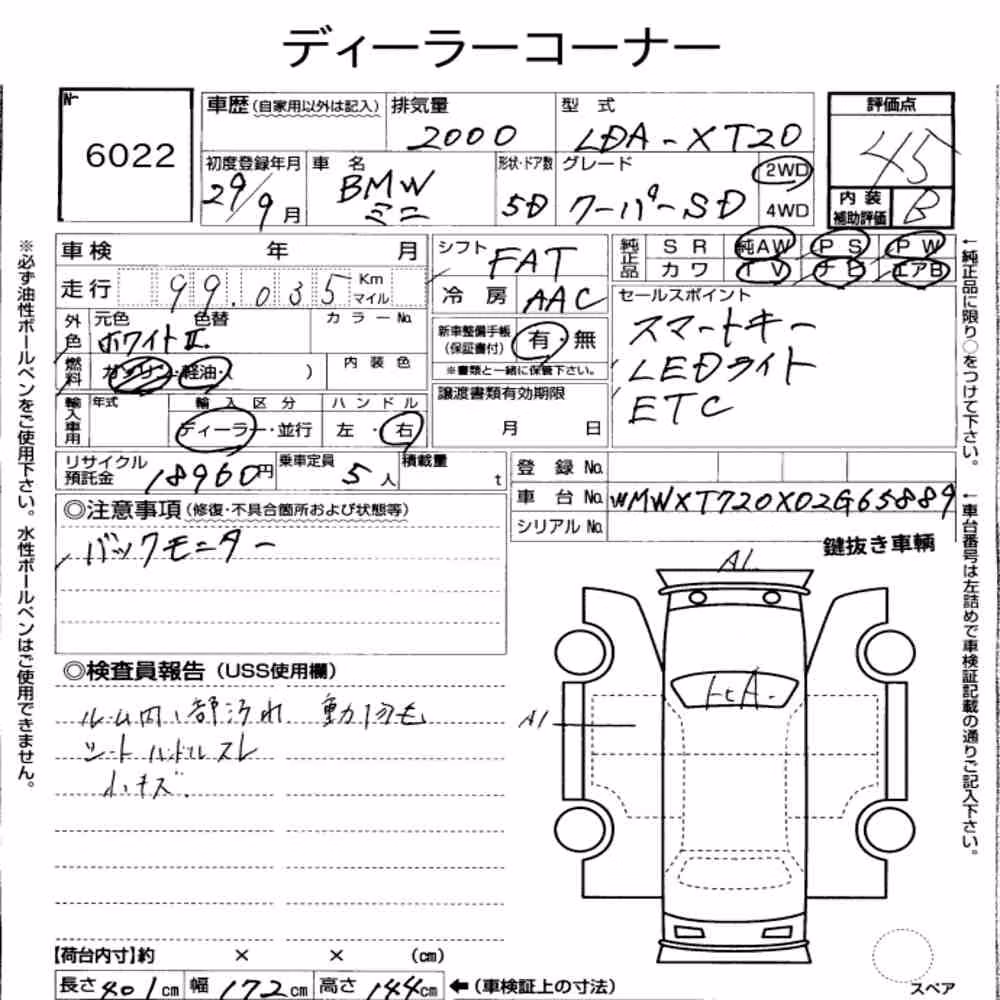 ディーラーコーナー
No. 6022
車歴(自家用以外は記入) 排気量 2000 型式 LDA-XT20 評価点 4.5
初度登録年月 29/9月 車名 BMW ミニ 形状・ドア数 5D グレード クーパーSD 2WD 4WD 内装補助評価 B
車検 年 月 シフト FAT 純正品 SR 純AW PS PW
走行 99.035 Km マイル 冷房 AAC カワ TV ナビ エアB
外色 元色 ホワイトII 色替 カラーNo. 新車整備手帳(保証書付) 有・無 セールスポイント
燃料 ガソリン・軽油・( ) 内装色 ※書類と一緒に保管下さい。 スマートキー
輸入車用 年式 輸入区分 ハンドル 譲渡書類有効期限 LEDライト
ディーラー・並行 左・右 月 日 ETC
リサイクル預託金 18960円 乗車定員 5人 積載量 t 登録No.
車台No. WMWXT720X02G65889
シリアルNo.
◎注意事項(修復・不具合箇所および状態等) 鍵抜き車輌
バックモニター
A1
◎検査員報告(USS使用欄)
ルーム内 部汚れ 動物毛
シート ハンドル スレ A1
小キズ
【荷台内寸】約 × × (cm)
長さ401cm 幅172cm 高さ144cm ←(車検証上の寸法) スペア
※必ず油性ボールペンをご使用下さい。水性ボールペンはご使用できません。
←純正品に限り○をつけて下さい。
←車台番号は左詰めで車検証記載の通りご記入下さい。